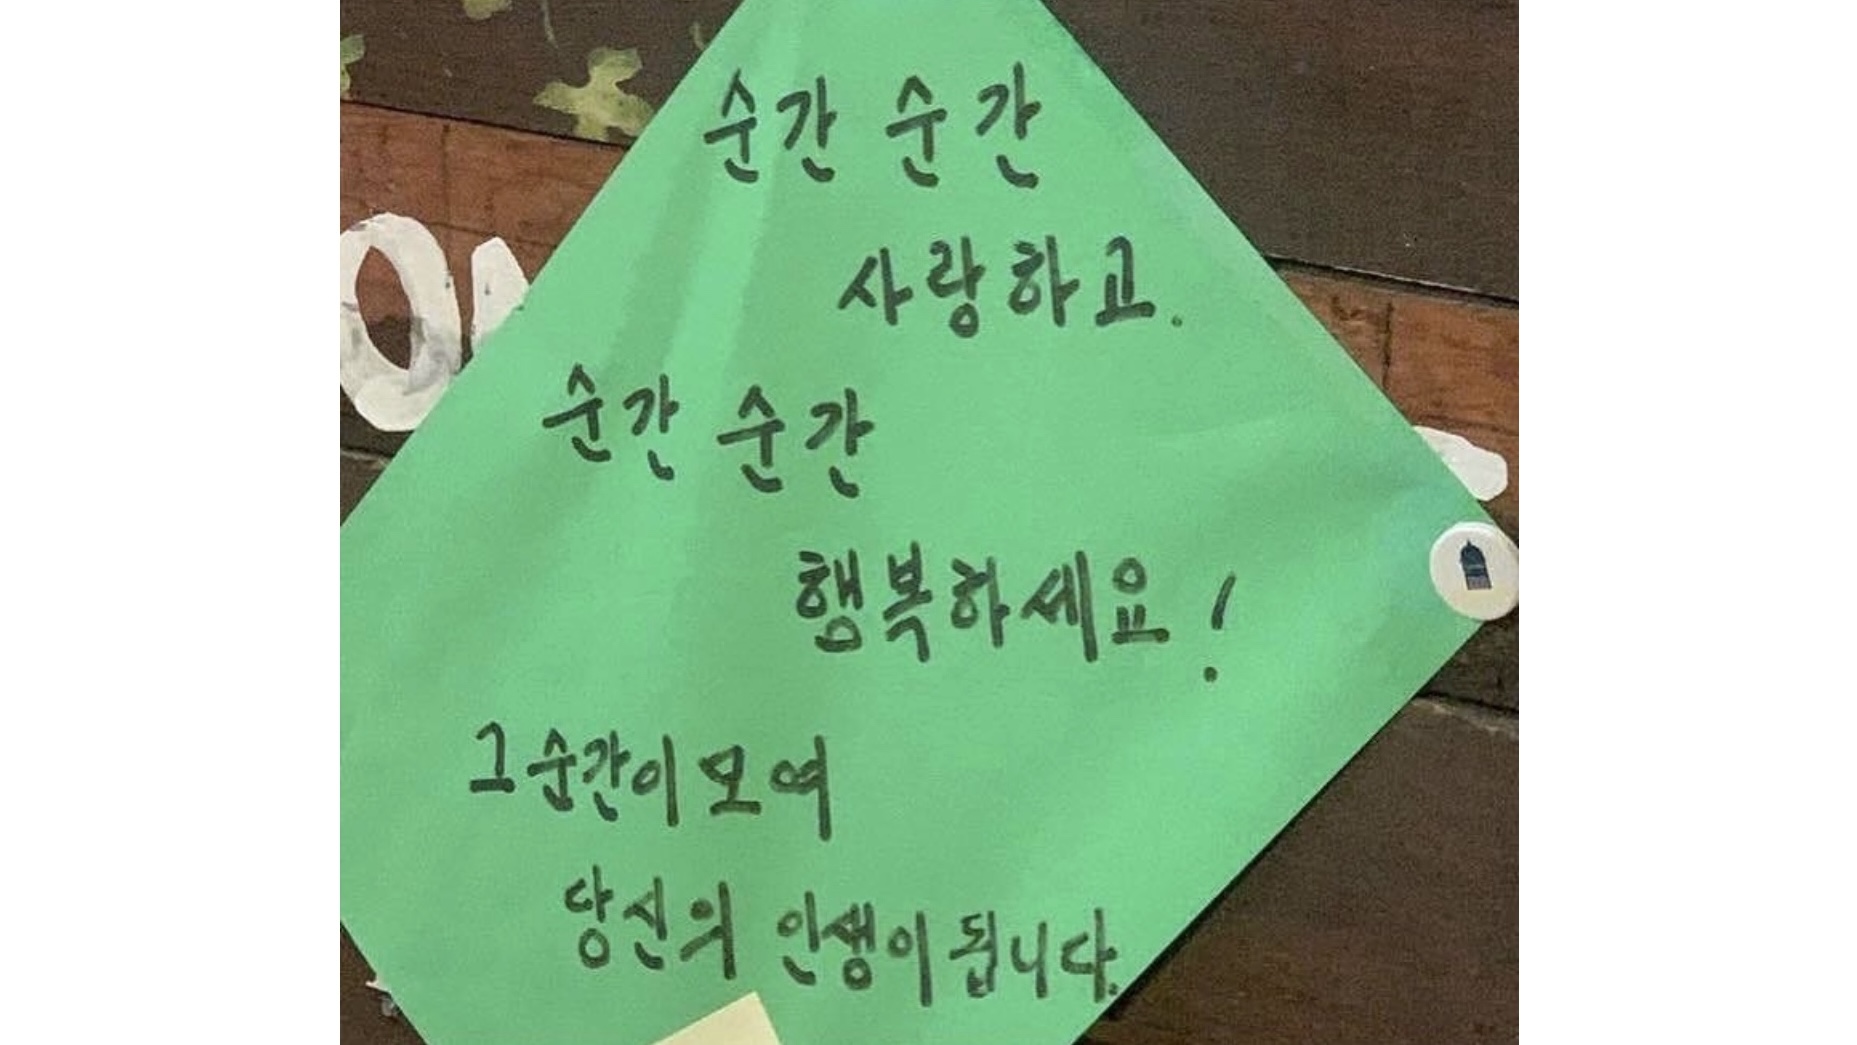 순간 순간
사랑하고.
순간 순간
행복하세요!
그 순간이 모여
당신의 인생이 됩니다.